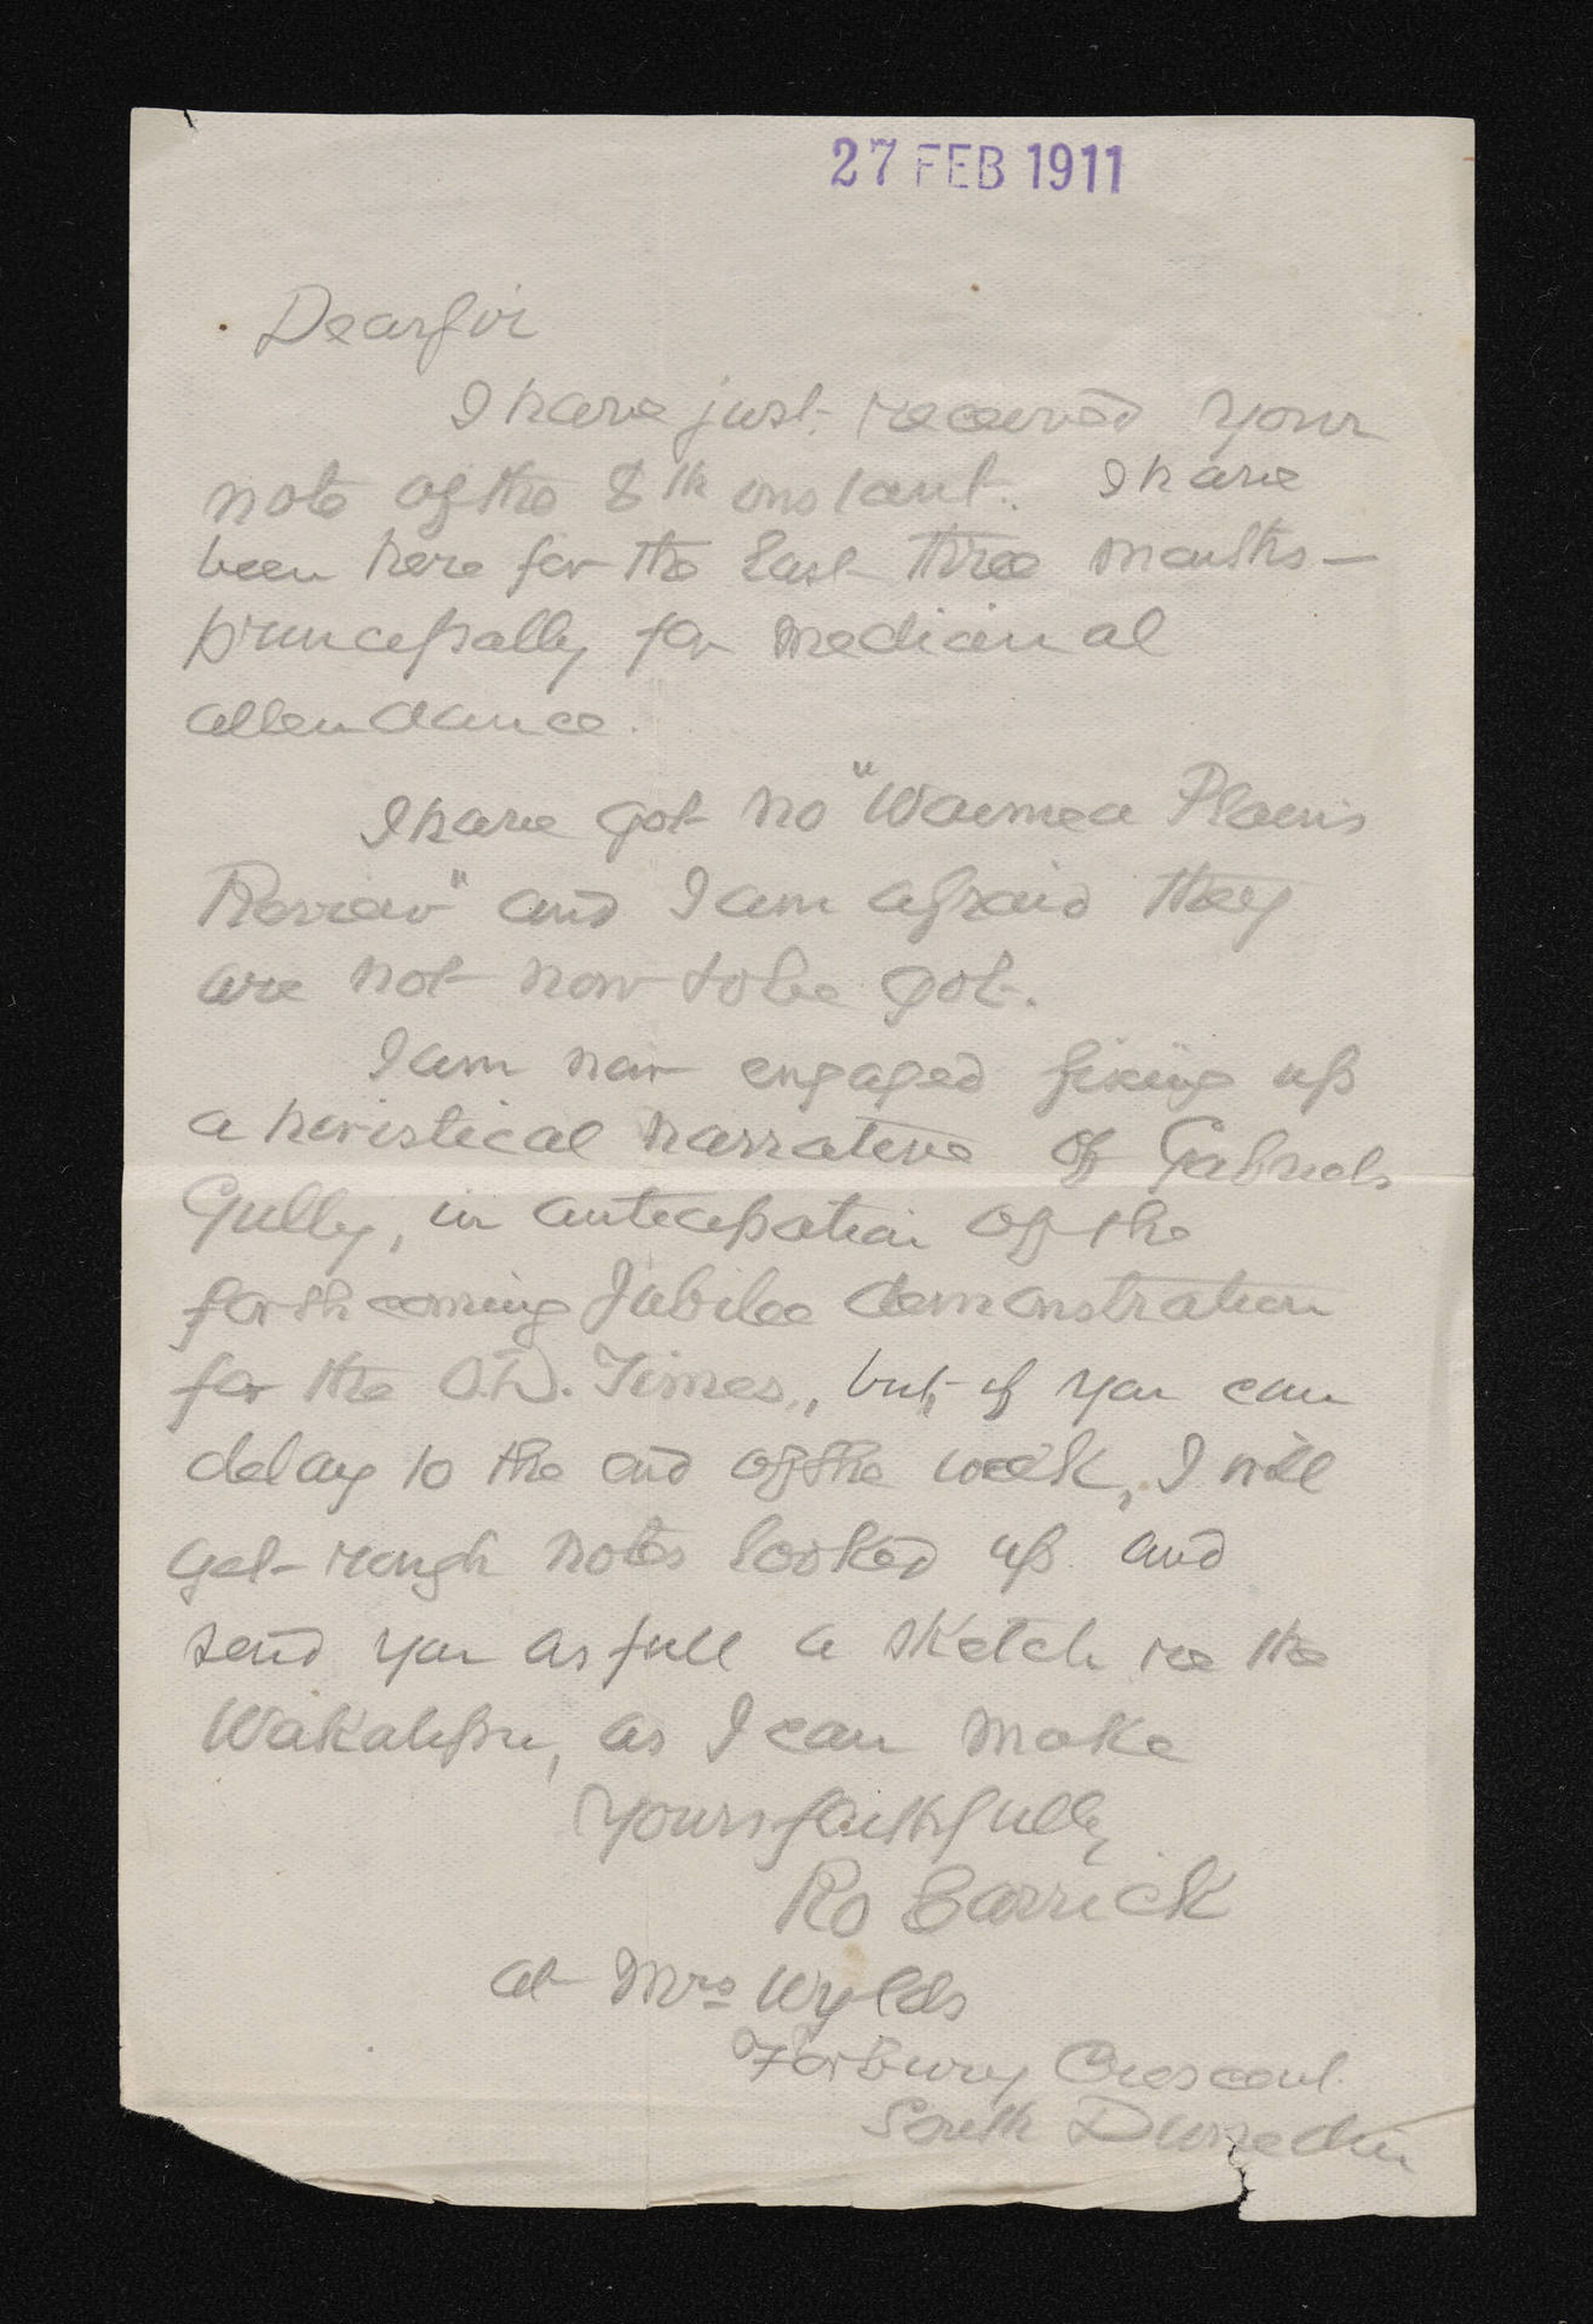 27 FEB 1911
Dear Sir
I have just received your
note of the 8th instant. I have
been here for the last three months —
principally for medicinal
attendance.
I have got no "Waimea Plains
Review" and I am afraid they
are not now to be got.
I am now engaged fixing up
a narrative of Gabriels
Gully, in anticipation of the
forthcoming Jubilee demonstration
for the O.D. Times,, but, if you can
delay to the end of the week, I will
get rough notes looked up and
send you as full a sketch re the
Wakatipu, as I can make
Yours faithfully
Ro Carrick
at Mrs Wylds
Forbury Crescent.
South Dunedin